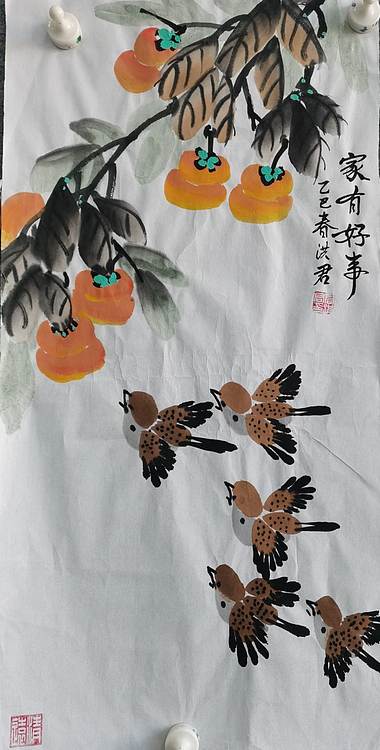 家有好事
乙巳春洪君
清遠